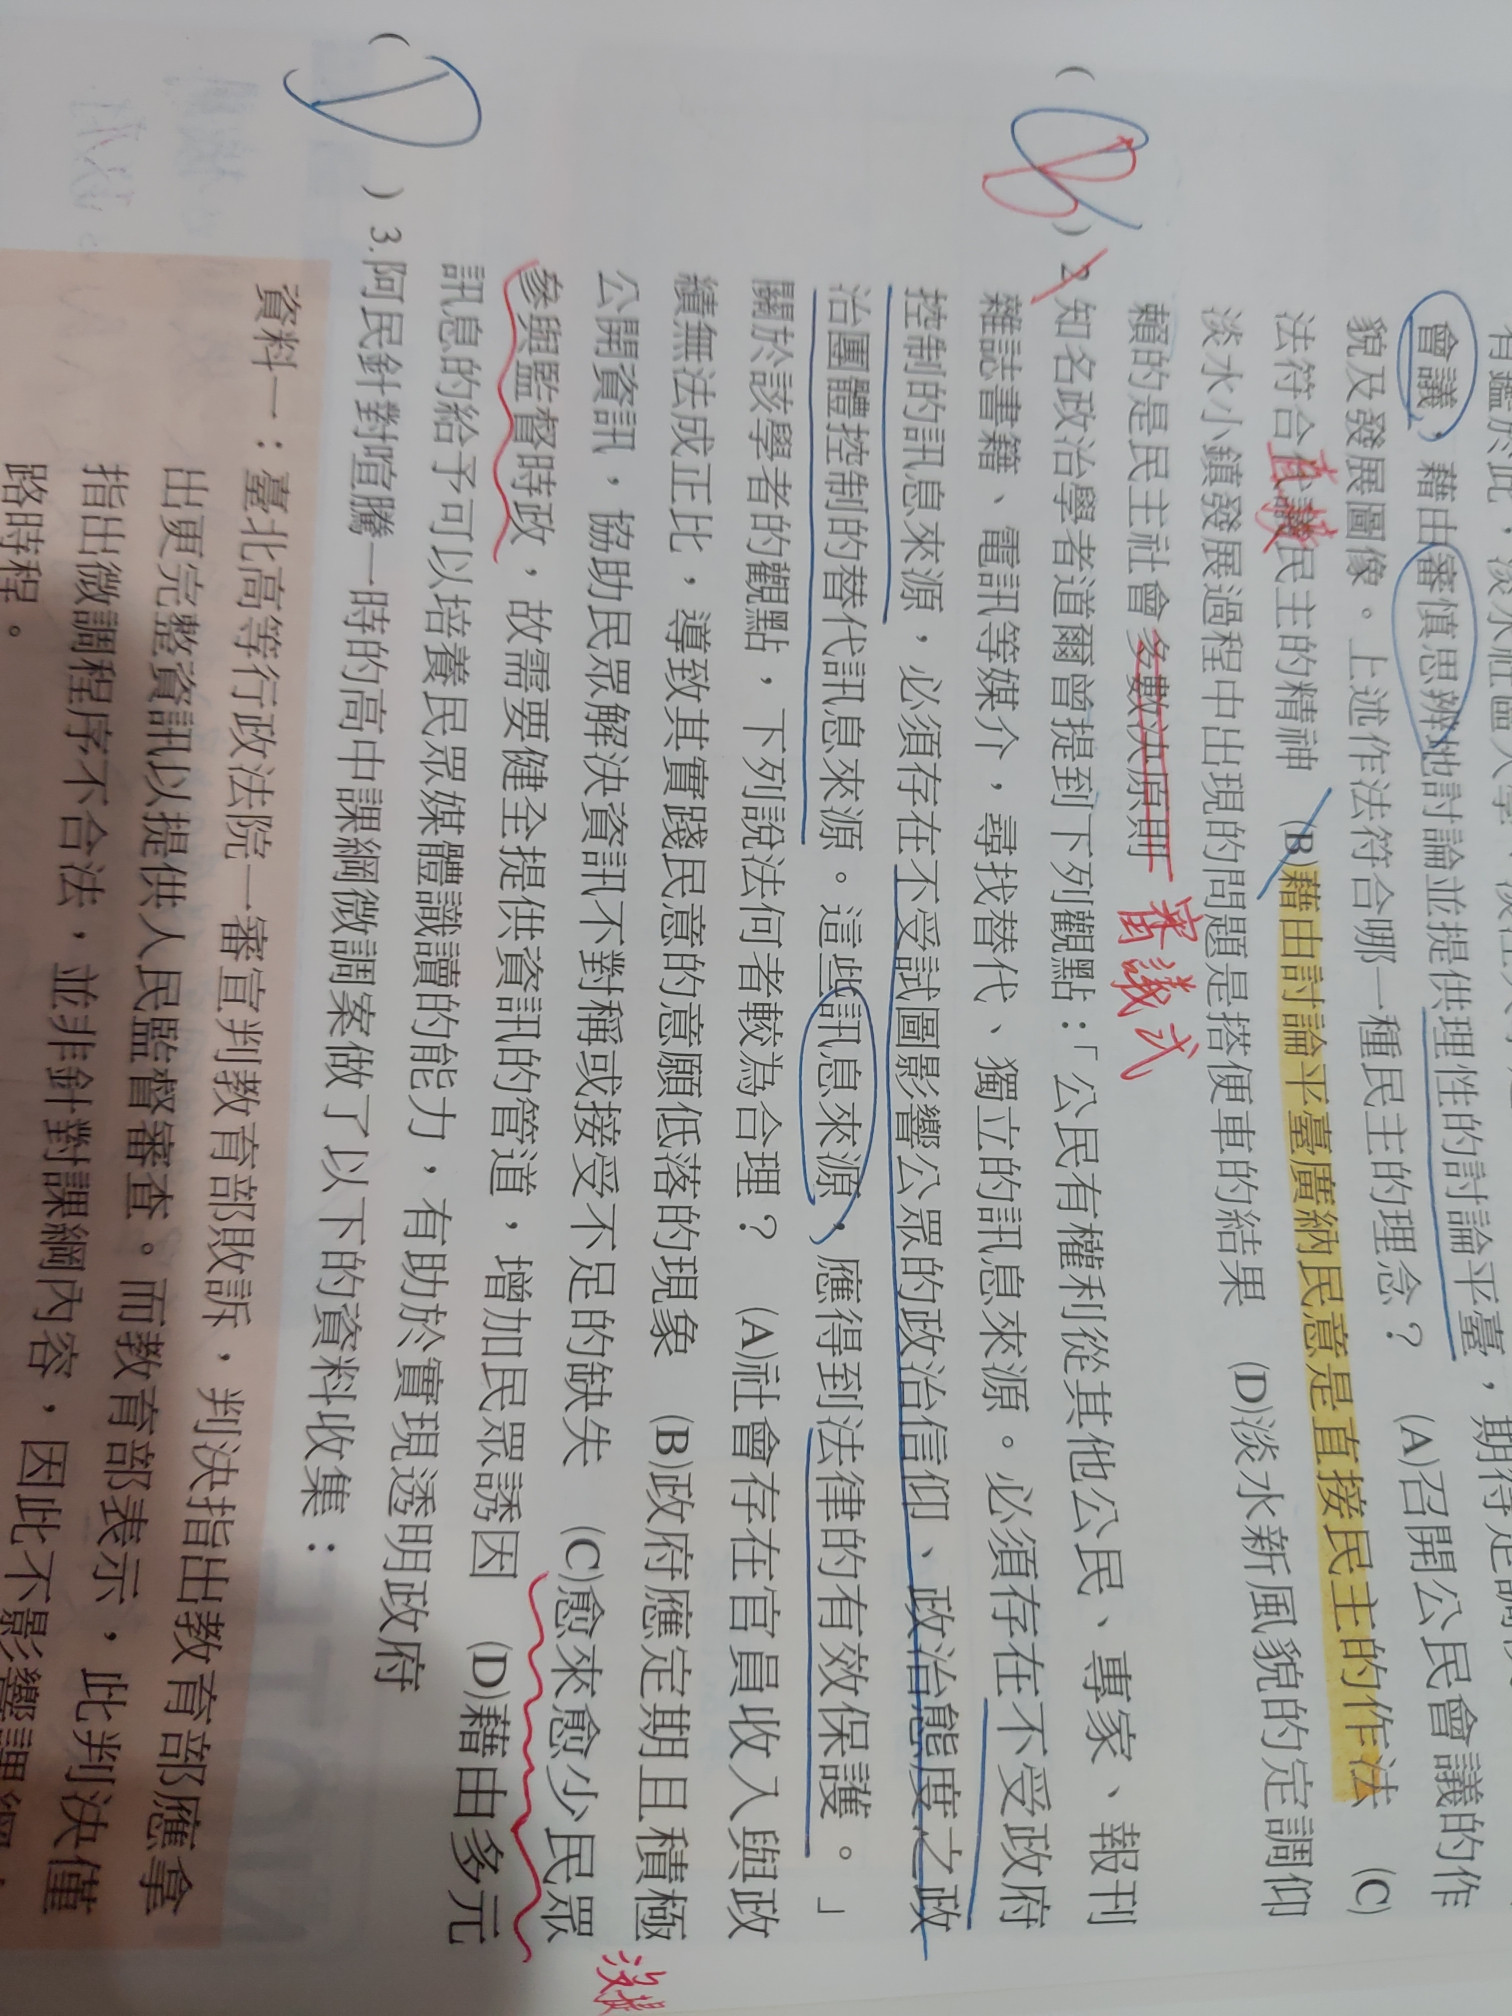 會議，藉由審慎思辨地討論並提供理性的討論平臺，期待
貌及發展圖像。上述作法符合哪一種民主的理念？　(A)召開公民會議的作
法符合代議民主的精神　(B)藉由討論平臺廣納民意是直接民主的作法　(C)
直接
淡水小鎮發展過程中出現的問題是搭便車的結果　(D)淡水新風貌的定調仰
賴的是民主社會多數決原則
審議式
B
(　)2.知名政治學者道爾曾提到下列觀點：「公民有權利從其他公民、專家、報刊
雜誌書籍、電訊等媒介，尋找替代、獨立的訊息來源。必須存在不受政府
控制的訊息來源，必須存在不受試圖影響公眾的政治信仰、政治態度之政
治團體控制的替代訊息來源。這些訊息來源，應得到法律的有效保護。」
關於該學者的觀點，下列說法何者較為合理？　(A)社會存在官員收入與政
績無法成正比，導致其實踐民意的意願低落的現象　(B)政府應定期且積極
公開資訊，協助民眾解決資訊不對稱或接受不足的缺失　(C)愈來愈少民眾
參與監督時政，故需要健全提供資訊的管道，增加民眾誘因　(D)藉由多元
訊息的給予可以培養民眾媒體識讀的能力，有助於實現透明政府
沒提
D
(　)3.阿民針對喧騰一時的高中課綱微調案做了以下的資料收集：
資料一：臺北高等行政法院一審宣判教育部敗訴，判決指出教育部應拿
出更完整資訊以提供人民監督審查。而教育部表示，此判決僅
指出微調程序不合法，並非針對課綱內容，因此不影響課綱
路時程。